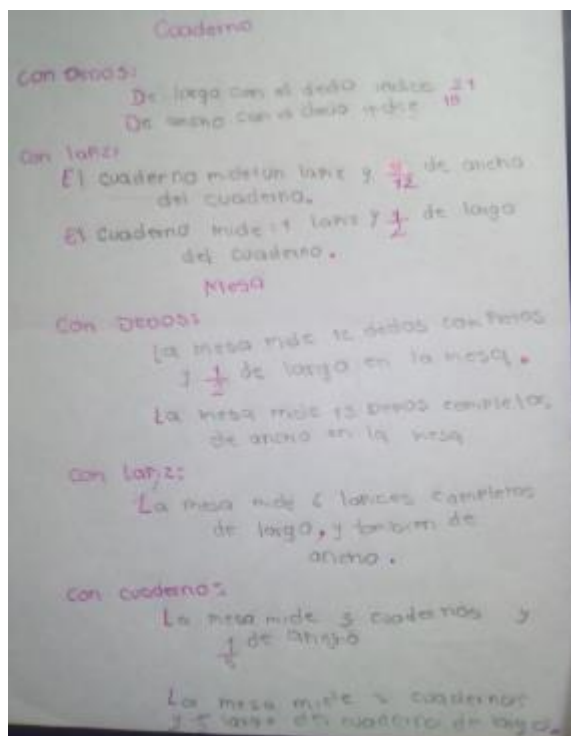 Cuaderno
Con DEDOS:
De largo con el dedo indice 21
De ancho con el dedo indice
Con lapiz:
El cuaderno mide un lapiz y de ancho
del cuaderno.
El cuaderno mide 1 lapiz y 1/2 de largo
del cuaderno.
Mesa
Con DEDOS:
La mesa mide 12 dedos
y 1/2 de largo en la mesa.
La mesa mide 13 DEDOS completos
de ancho en la mesa
Con Lapiz:
La mesa mide 6 lapices completos
de largo, y tambien de
ancho.
Con cuaderno:
La mesa mide 3 cuadernos y
de ancho
La mesa mide cuadernos
largo del cuaderno de largo.